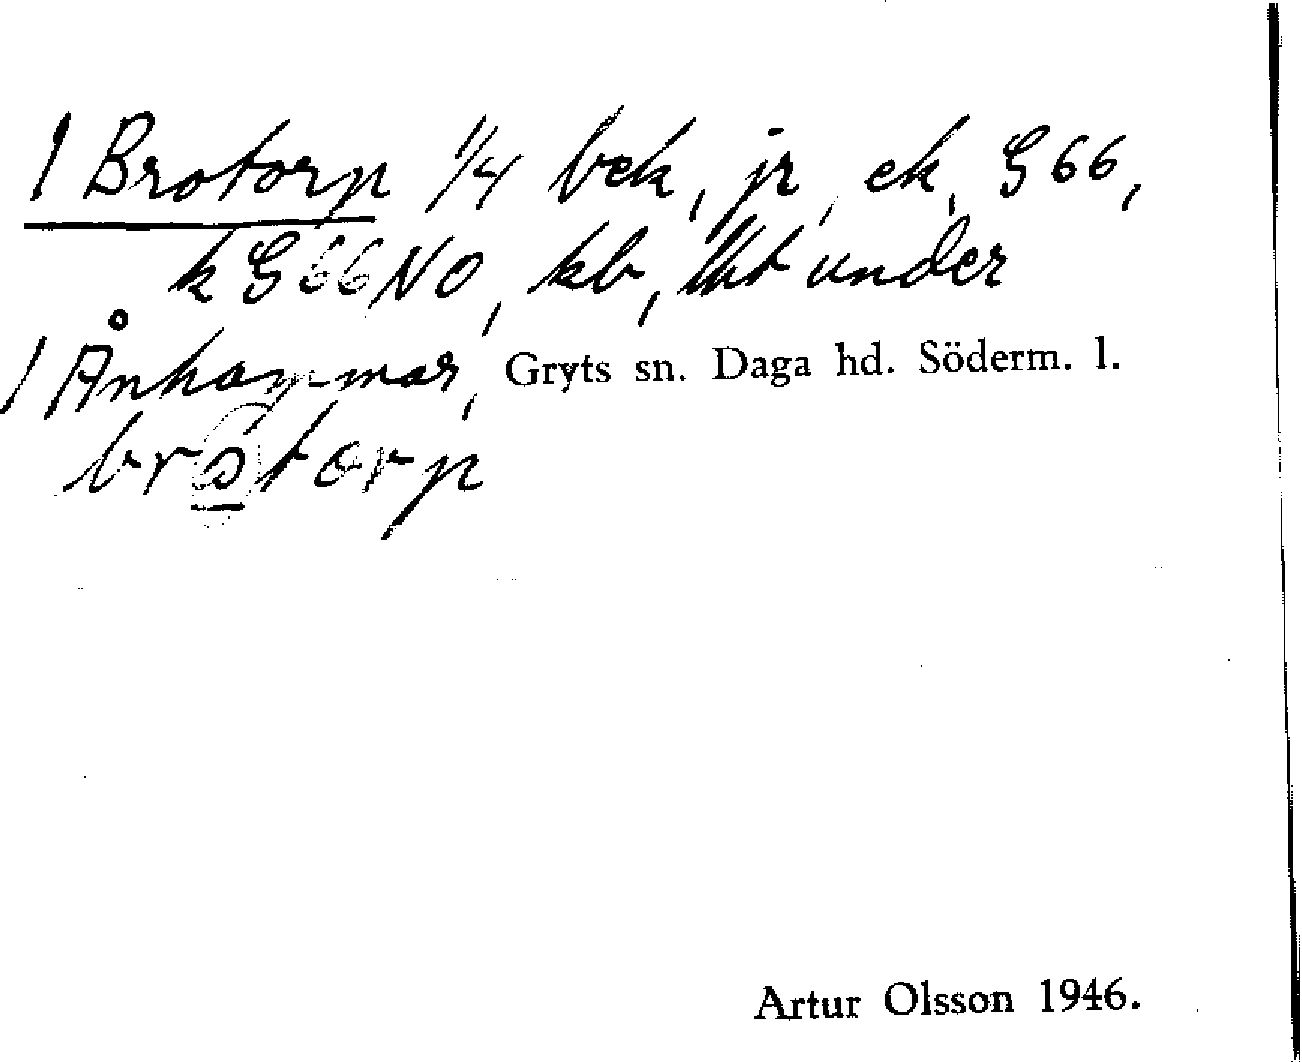 1 Brotorp 1/4 bek, jr, ek, G 66,
k G 66 NO, kb, tht under
1 Ånhammar, Gryts sn. Daga hd. Söderm. l.
brotorp
Artur Olsson 1946.